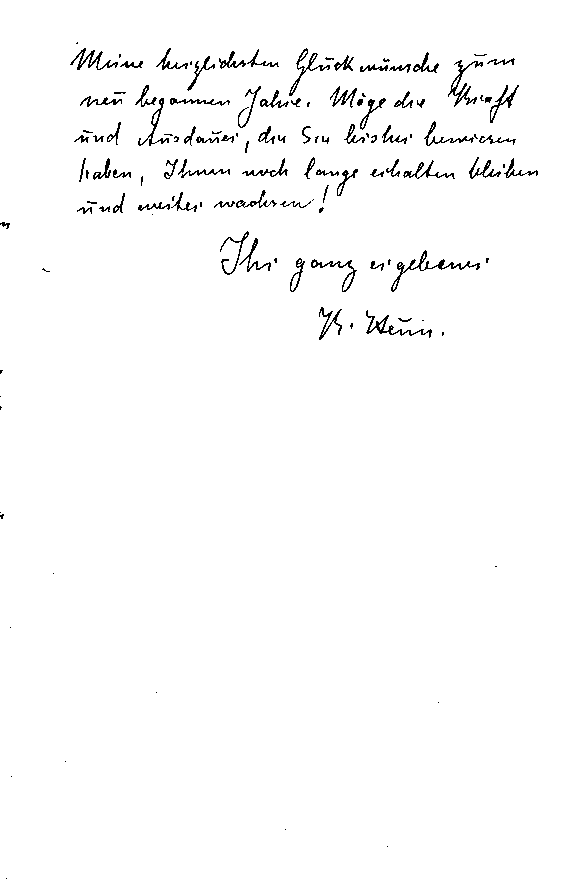 Meine herzlichsten Glückwünsche zum
neu begonnen Jahre. Möge die Kraft
und Ausdauer, die Sie bisher bewiesen
haben, Ihnen noch lange erhalten bleiben
und weiter wachsen!
Ihr ganz ergebener
K.